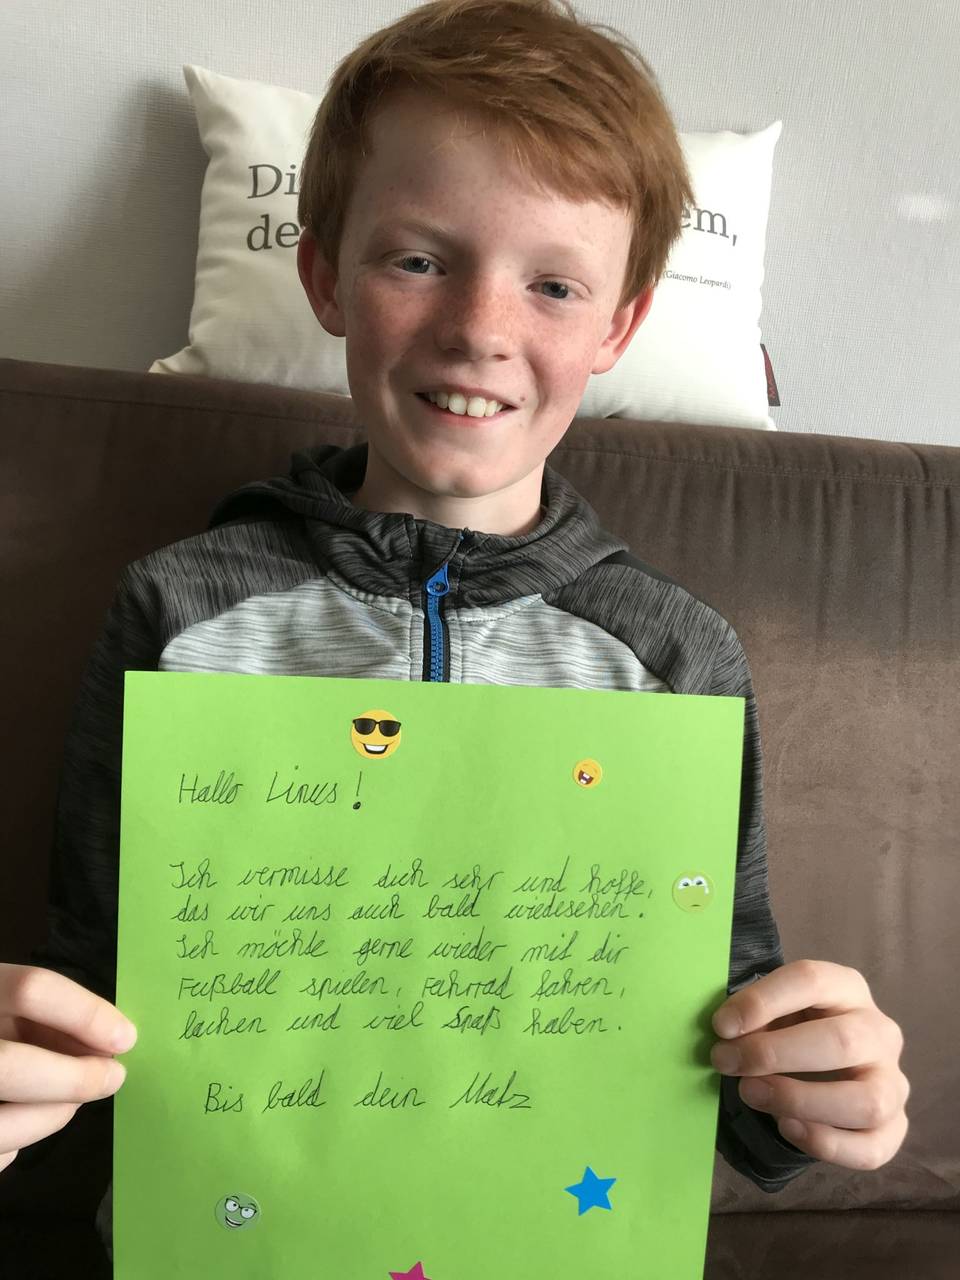 Di
de
em,
(Giacomo Leopardi)
Hallo Linus!
Ich vermisse dich sehr und hoffe,
das wir uns auch bald wiedesehen.
Ich möchte gerne wieder mit dir
Fußball spielen, Fahrrad fahren,
lachen und viel Spaß haben.
Bis bald dein Matz